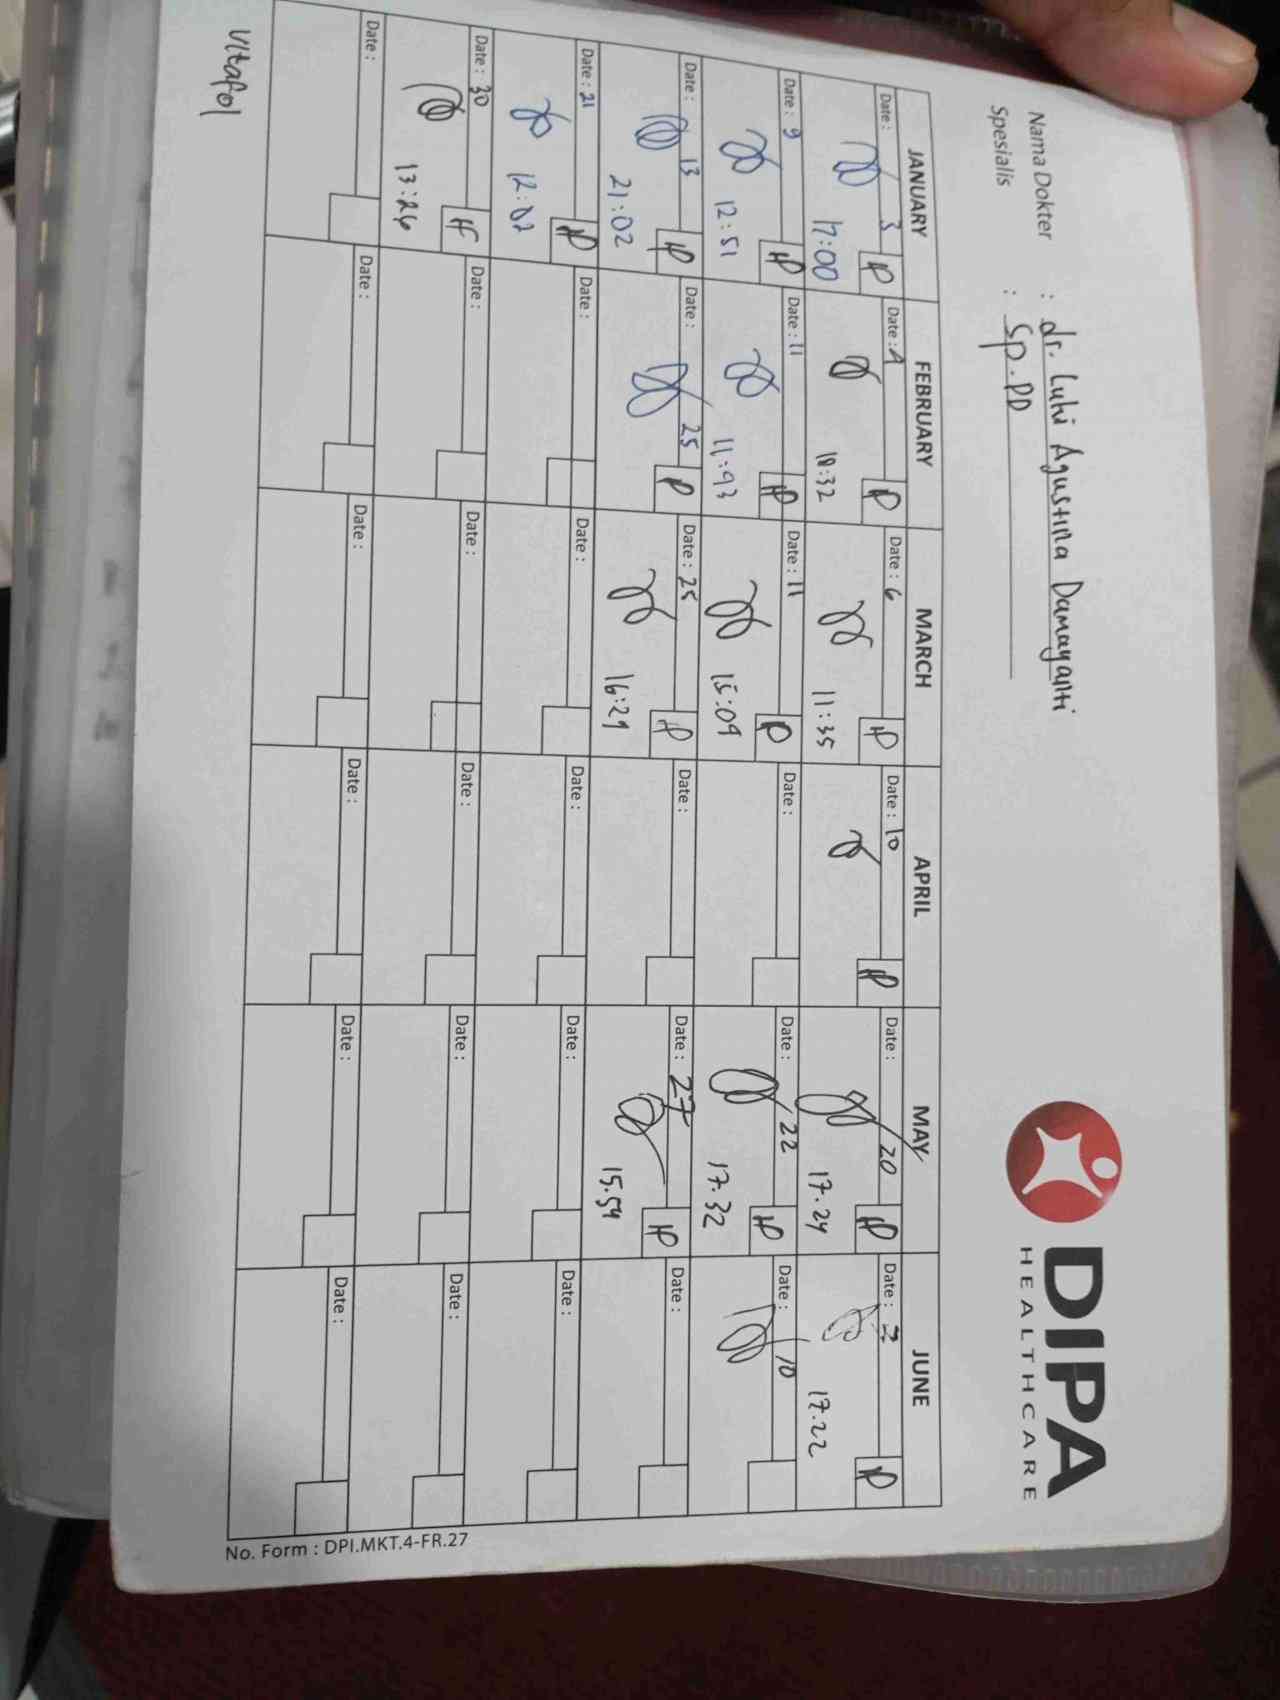 Nama Dokter : dr. Luhi Agustina Damayanti
Spesialis : Sp.PD
DIPA
HEALTHCARE
JANUARY FEBRUARY MARCH APRIL MAY JUNE
Date : 3 Date : 4 Date : 6 Date : 10 Date : 20 Date : 3
17:00 18:32 11:35 17.24 17.22
Date : 9 Date : 11 Date : 11 Date : Date : 22 Date : 10
12:51 11:43 15:09 17.32
Date : 13 Date : 25 Date : 25 Date : Date : 27 Date :
21:02 16:29 15.54
Date : 21 Date : Date : Date : Date : Date :
12:02
Date : 30 Date : Date : Date : Date : Date :
13:26
Date : Date : Date : Date : Date : Date :
Vitafol
No. Form : DPI.MKT.4-FR.27